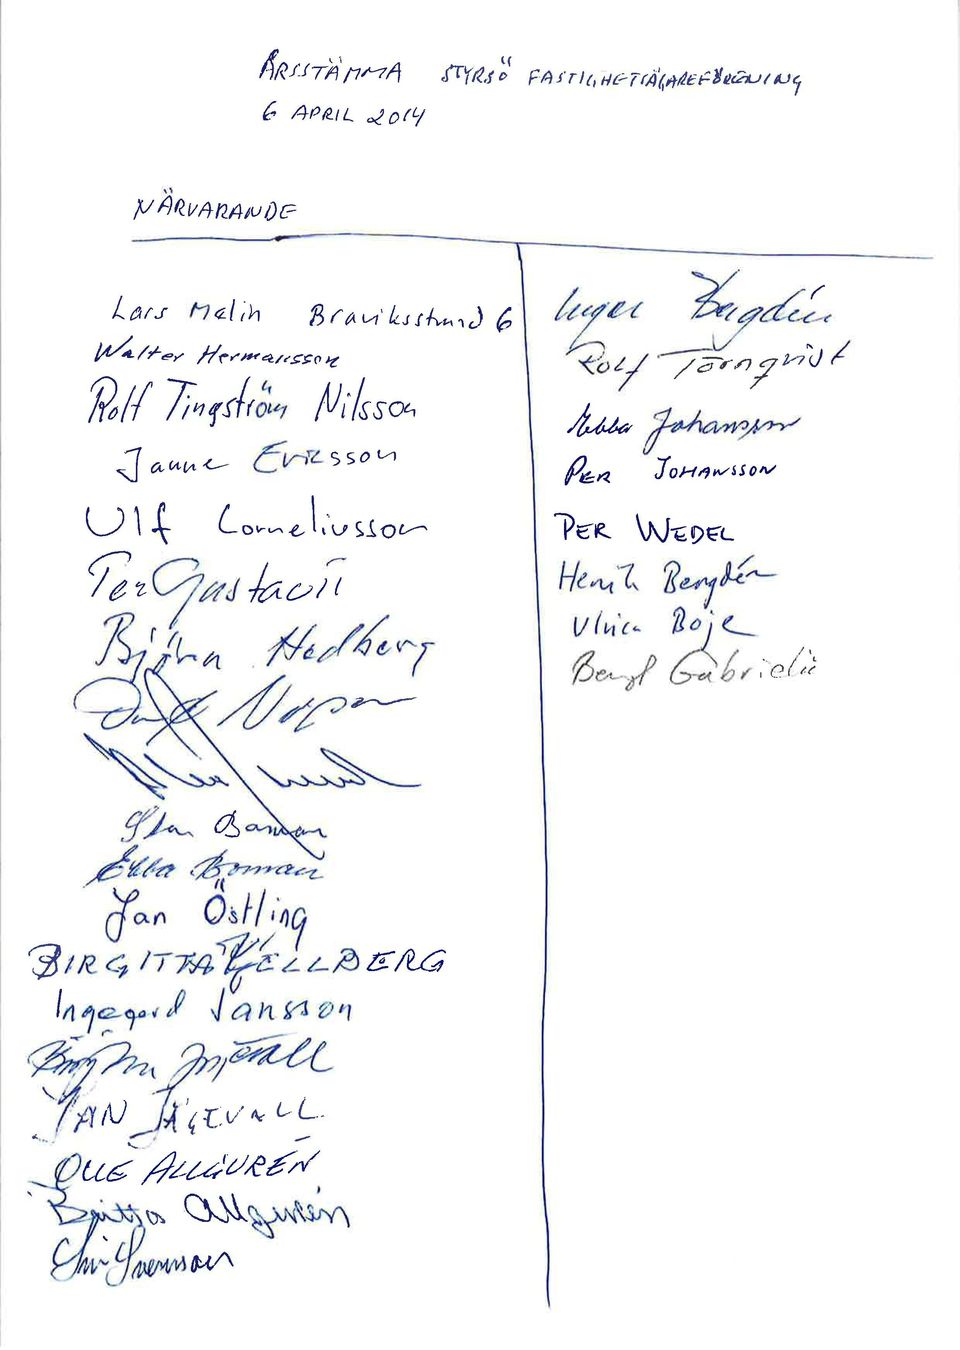 ÅRSSTÄMMA STYRSÖ FASTIGHETSÄGAREFÖRENING
6 APRIL 2014
NÄRVARANDE
Lars Malin Braviksstrand 6
Walter Hermansson
Rolf Tingström Nilsson
Janne Ericsson
Ulf Corneliusson
Per Gustavii
Björn Hedberg
Sten Boman
Ebba Boman
Jan Östling
BIRGITTA KJELLBERG
Ingegerd Jansson
JAN JÄGEVALL
OLLE ALLGURÉN
Britta Allgurén
Siv Svensson
Inger Bengdén
Rolf Törnqvist
Ebba Johansson
PER JOHANSSON
PER WEDEL
Henrik Bengdén
Ulrica Boje
Bengt Gabrielii